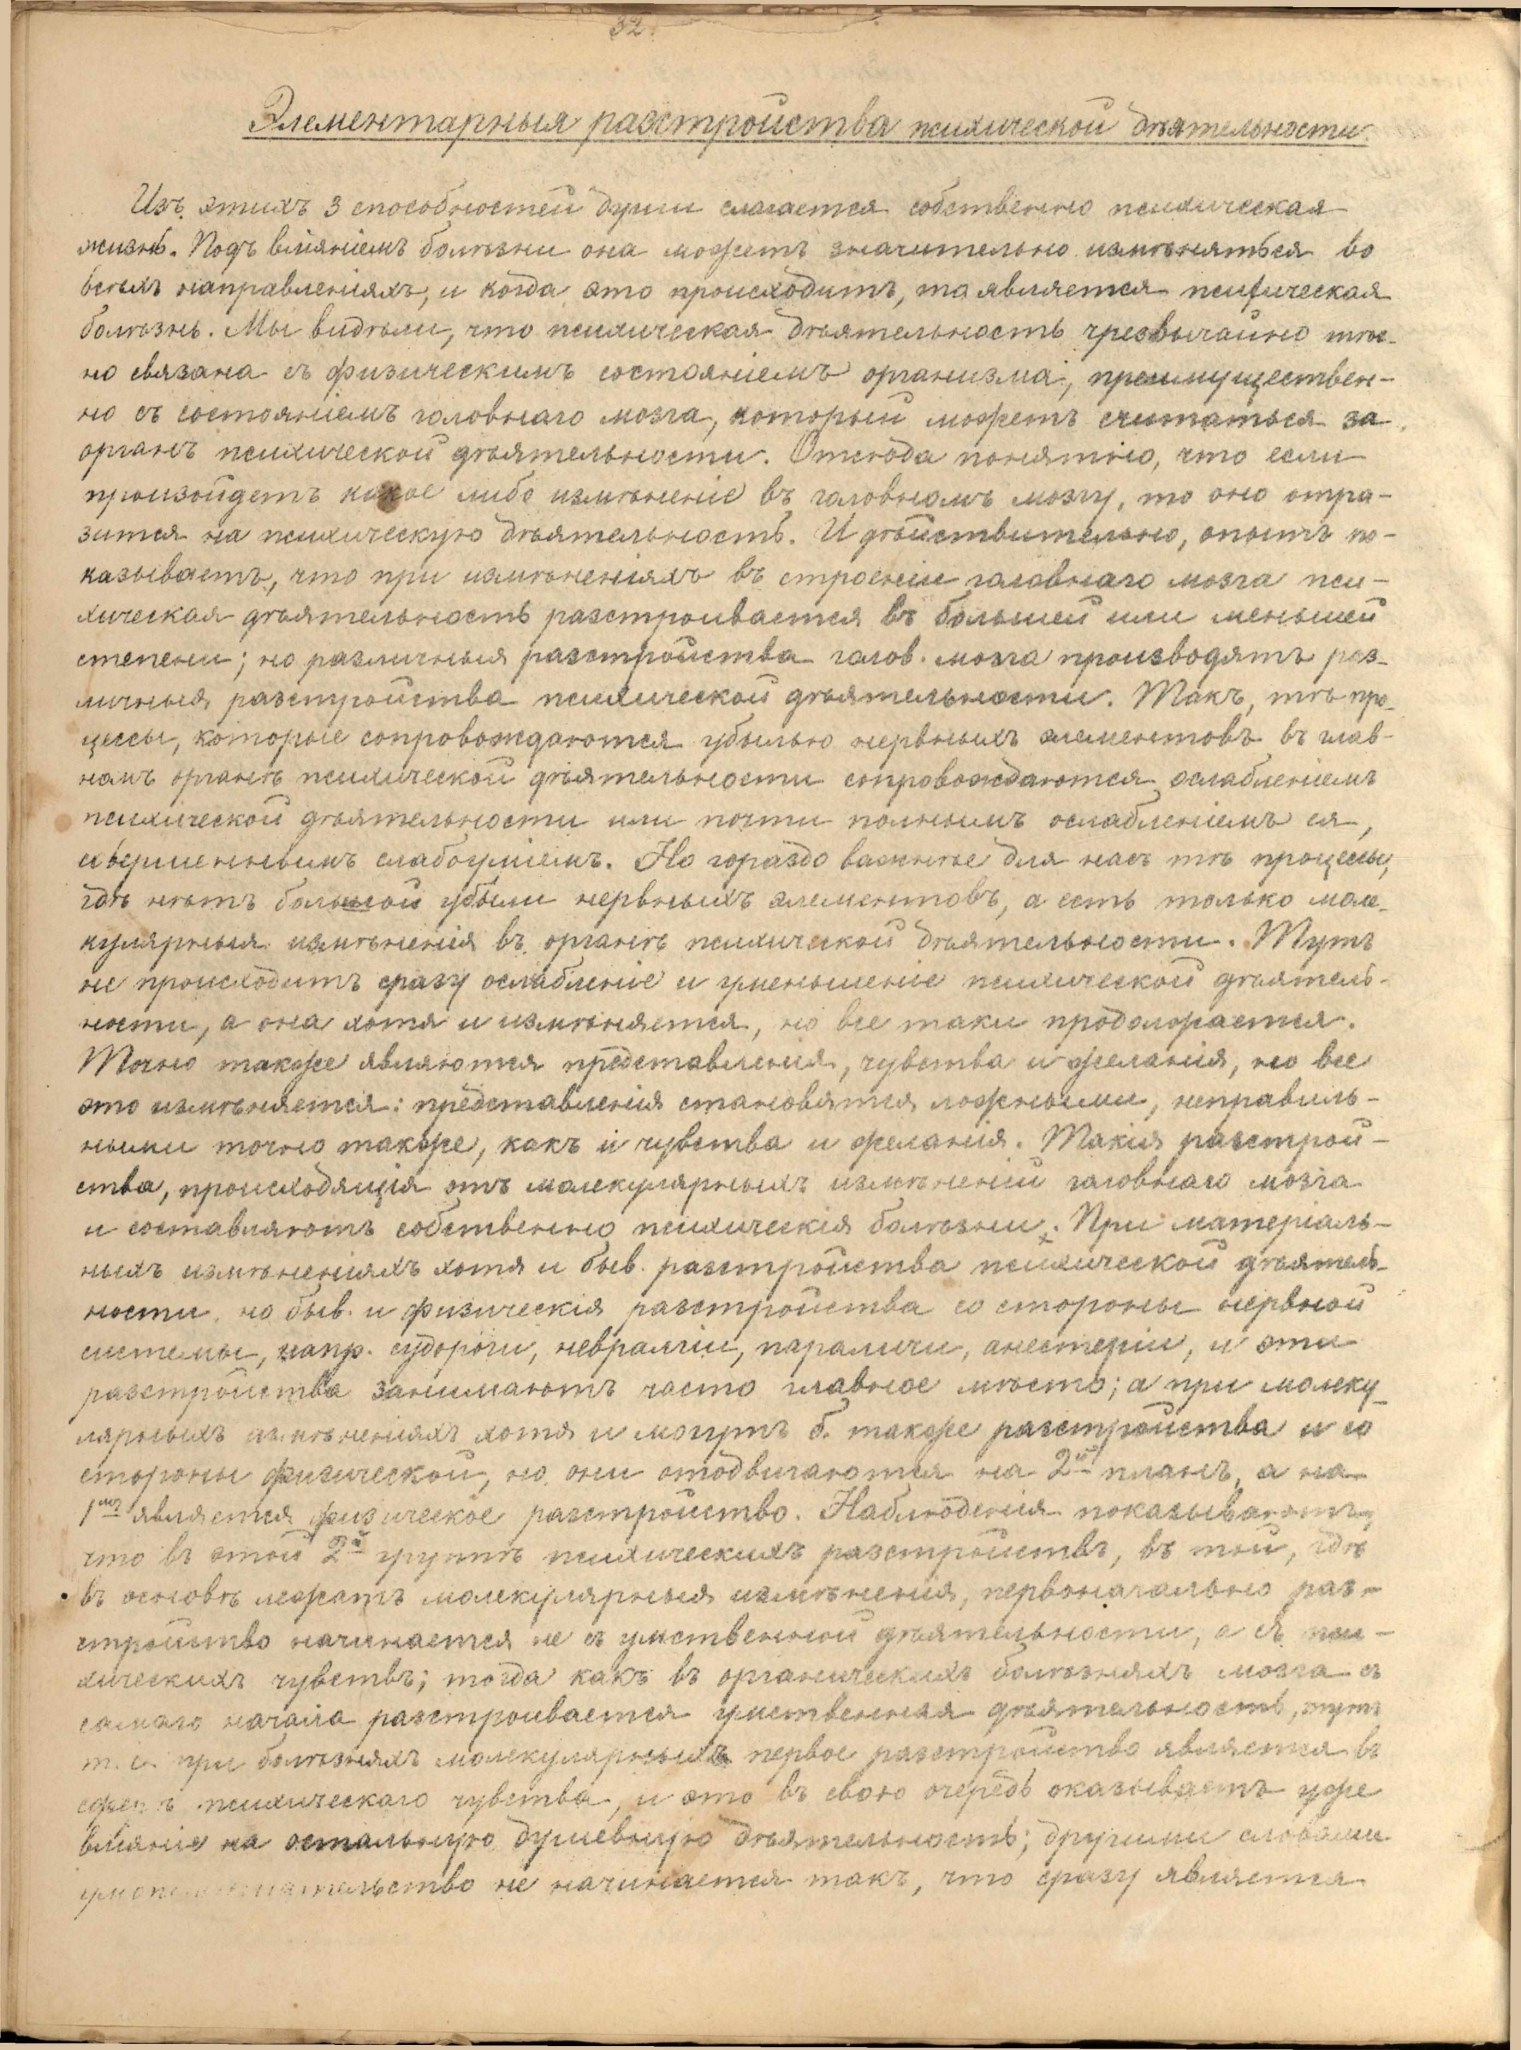 32.
Элементарныя разстройства психической дѣятельности.
Изъ этихъ 3 способностей души слагается собственно психическая
жизнь. Подъ вліяніемъ болѣзни она можетъ значительно измѣняться во
всѣхъ направленіяхъ, и когда это происходитъ, то является психическая
болѣзнь. Мы видѣли, что психическая дѣятельность чрезвычайно тѣс-
но связана съ физическимъ состояніемъ организма, преимуществен-
но съ состояніемъ головнаго мозга, который можетъ считаться за
органъ психической дѣятельности. Отсюда понятно, что если
произойдетъ какое либо измѣненіе въ головномъ мозгу, то оно отра-
зится на психическую дѣятельность. И дѣйствительно, опытъ по-
казываетъ, что при измѣненіяхъ въ строеніи головнаго мозга пси-
хическая дѣятельность разстроивается въ большей или меньшей
степени; но различныя разстройства голов. мозга производятъ раз-
личныя разстройства психической дѣятельности. Такъ, тѣ про-
цессы, которые сопровождаются убылью нервныхъ элементовъ въ глав-
номъ органѣ психической дѣятельности сопровождаются ослабленіемъ
психической дѣятельности или почти полнымъ ослабленіемъ ея,
совершеннымъ слабоуміемъ. Но гораздо важнѣе для насъ тѣ процессы,
гдѣ нѣтъ большой убыли нервныхъ элементовъ, а есть только моле-
кулярныя измѣненія въ органѣ психической дѣятельности. Тутъ
не происходитъ сразу ослабленіе и уменьшеніе психической дѣятель-
ности, а она хотя и измѣняется, но все таки продолжается.
Точно также являются представленія, чувства и желанія, но все
это измѣняется: представленія становятся ложными, неправиль-
ными точно также, какъ и чувства и желанія. Такія разстрой-
ства, происходящія отъ молекулярныхъ измѣненій головнаго мозга
и составляютъ собственно психическія болѣзни. При матеріаль-
ныхъ измѣненіяхъ хотя и быв. разстройства психической дѣятель-
ности, но быв. и физическія разстройства со стороны нервной
системы, напр. судороги, невралгіи, параличи, анестезіи, и эти
разстройства занимаютъ часто главное мѣсто; а при молеку-
лярныхъ измѣненіяхъ хотя и могутъ б. также разстройства и со
стороны физической, но они отодвигаются на 2й планъ, а на
1мъ является физическое разстройство. Наблюденія показываютъ,
что въ этой 2й группѣ психическихъ разстройствъ, въ той, гдѣ
въ основѣ лежатъ молекулярныя измѣненія, первоначально раз-
стройство начинается не съ умственной дѣятельности, а съ пси-
хическихъ чувствъ; тогда какъ въ органическихъ болѣзняхъ мозга съ
самаго начала разстроивается умственная дѣятельность, тутъ
т. е. при болѣзняхъ молекулярныхъ первое разстройство является въ
сферѣ психическаго чувства, и это въ свою очередь оказываетъ уже
вліяніе на остальную душевную дѣятельность; другими словами
умопомѣшательство не начинается такъ, что сразу является